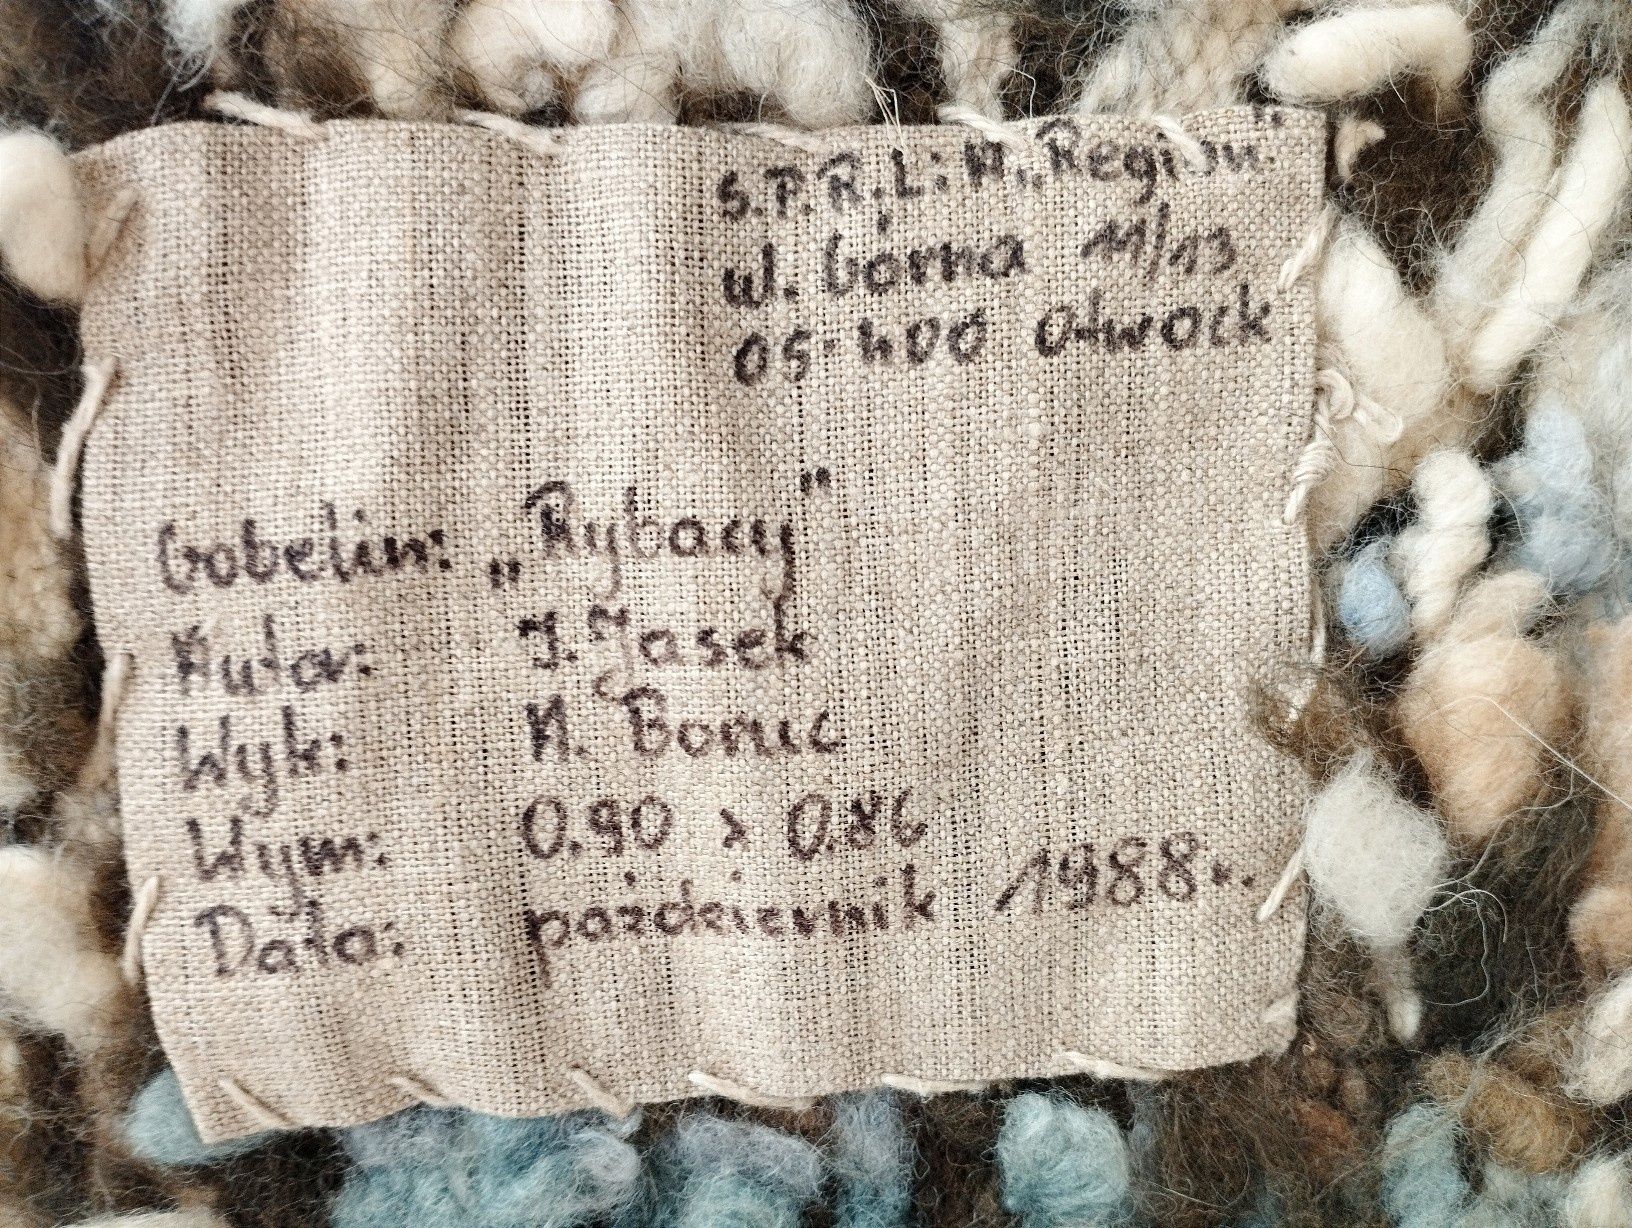 S.P.R.L.i A. „Region"
ul. Górna 11/13
05-400 Otwock
Gobelin: „Rybacy"
Autor: J. Jasek
Wyk: A.
Wym: 0.90 x 0.86
Data: październik 1988r.